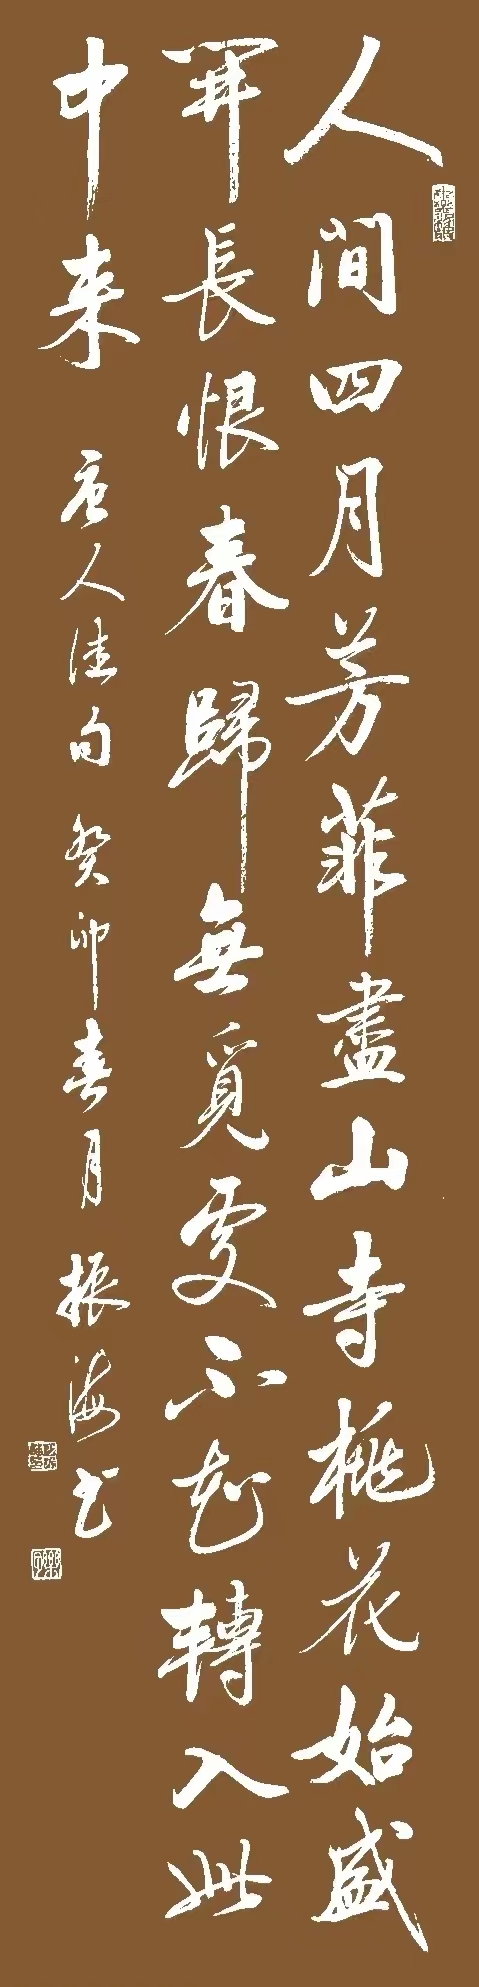 人間四月芳菲盡山寺桃花始盛
開長恨春歸無覓處不知轉入此
中来 唐人佳句 癸卯春月 振海书